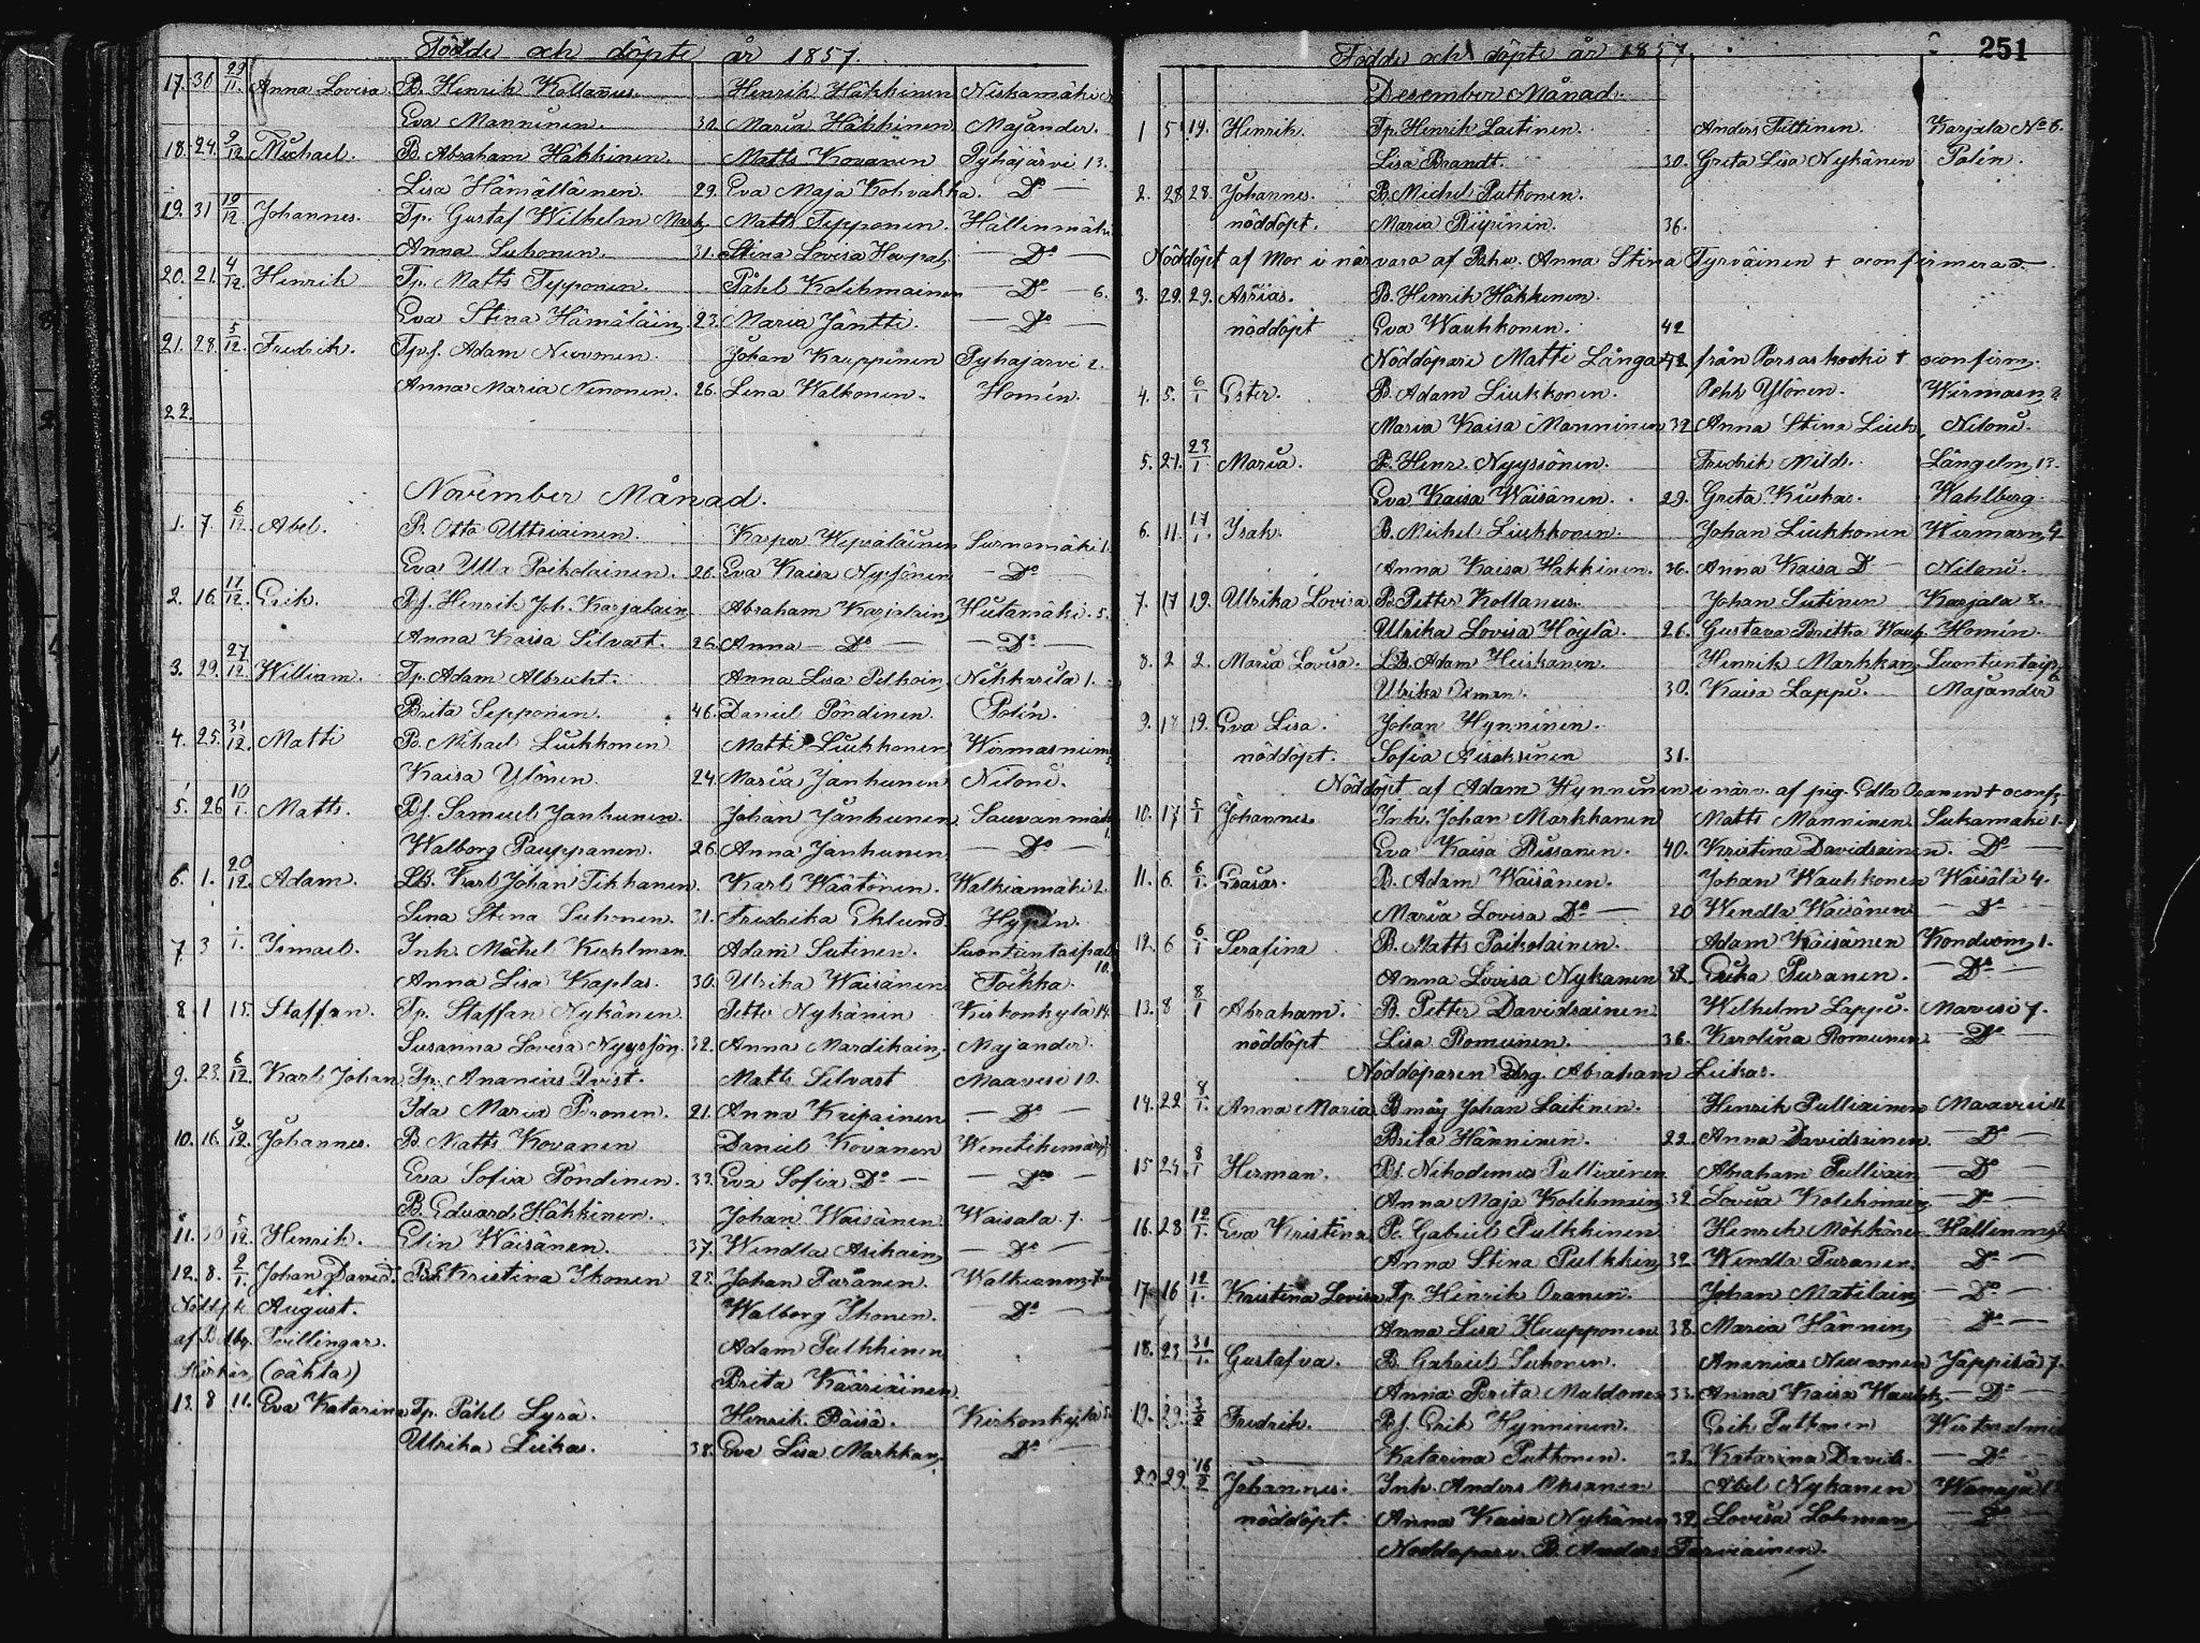 Födde och döpte år 1857.
17. 30 29/11. Anna Lovisa. B. Henrik Kollanus. Henrik Häkkinen Niskamäki
Eva Manninen. 30. Maria Häkkinen Majander.
18. 24. 9/12 Michael. B. Abraham Häkkinen. Matts Kovanen Pyhäjärvi 13.
Lisa Hämäläinen. 29. Eva Maja Kohvakka. Do —
19. 31 19/12 Johannes. Tp. Gustaf Wilhelm Mark. Matts Tepponen. Hällinmäki
Anna Suhonen. 31. Stina Lovisa — Do —
20. 21. 4/12. Henrik Tp. Matts Tepponen. Påhl Kolehmainen — Do — 6.
Eva Stina Hämäläin, 23. Maria Jäntti. — Do —
21. 28. 5/12. Fredrik. Tpf. Adam Nivonen. Johan Kauppinen Pyhajarvi 2.
Anna Maria Ninonen. 26. Lena Walkonen. Homén.
22.
November Månad.
1. 7. 6/12. Abel. B. Otto Uttriainen. Kasper Wepsäläinen Surnomäki 1.
Eva Ulla Poikolainen. 28. Eva Kaisa Nyssönen — Do —
2. 16. 17/12. Erik. Bf. Henrik Joh. Karjalain, Abraham Karjalain, Hiitamäki. 5.
Anna Kaisa Silvast. 26. Anna — Do — — Do —
3. 29. 27/12 William. Tp. Adam Albrecht. Anna Lisa Pelkoin, Nikkarila 1.
Brita Sepponen. 46. Daniel Pöndinen. Polén.
4. 25. 31/12. Matti B. Mihael Liukkonen Matti Liukkonen Wirmasniem
Kaisa Ylönen. 24. Maria Janhunen Niloni.
5. 26 10/1. Matts. Bf. Samuel Janhunen. Johan Janhunen. Sauvanmäk
Walborg Pauppanen. 26. Anna Janhunen — Do —
6. 1. 20/12. Adam. LB. Karl Johan Tikkanen. Karl Wäätönen. Walkiamäki 2.
Lena Stina Suhonen. 31. Fredrika Eklund Hypén.
7. 3 1. Ismael. Inh. Mickel Kuhlman. Adam Sutinen. Suontientaipal
Anna Lisa Kaplas. 30. Ulrika Wäisänen Toikka. 10.
8. 1 15. Staffan. Tp. Staffan Nykänen. Petter Nykänin Kirkonkylä 14.
Susanna Lovisa Nyyssön. 32. Anna Mardikain, Majander.
9. 23. 6/12. Karl Johan Tp. Ananias Qvist. Matts Silvast Maavesi 10.
Ida Maria Poronen. 21. Anna Kaipainen — Do —
10. 16. 9/12. Johannes. B. Matts Kovanen Daniel Kovanen Wenetekemäki
Eva Sofia Pöndinen. 33. Eva Sofia Do — — Do —
B. Edvard Häkkinen. Johan Waisänen Waisala 7.
11. 30 5/12. Henrik. Elin Wäisänen. 37. Wendla Asikain, — Do —
12. 8. 2/1. Johan David. Kristina Ikonen 28. Johan Puranen. Walkiam, 7
et
Nöddpt. August. Walborg Ikonen. — Do —
af B. Abr. Tvillingar. Adam Pulkkinen
(oäkta) Brita Kääriäinen.
13. 8 11. Eva Katarina Tp. Påhl Lyrä. Henrik Räisä. Kirkonkylä
Ulrika Leikas. 38. Eva Lisa Markkan, Do —
Födde och döpte år 1857. 251
Desember Månad.
1 5 19. Henrik. Tp. Henrik Laitinen. Anders Tuttinen. Karjala No 6.
Lisa Brandt. 30. Greta Lisa Nykänen Polén.
2. 28 28. Johannes. B. Michel Putkonen.
nöddöpt. Maria Riipinin. 36.
Nöddöpt af Mor i närvaro af Pahv. Anna Stina Tyrväinen + oconfirmerad.
3. 29. 29. Asrias. B. Henrik Häkkinen.
nöddöpt Eva Wauhkonen. 42
Nöddöpare Matti Långa från Porsaskoski + oconfirm,
4. 5. 6/1 Ester. B. Adam Liukkonen. Pehr Ylönen. Wirmasn, 2
Maria Kaisa Manninen 32 Anna Stina Liuk, Niloni.
5. 21. 23/1. Maria. B. Henr. Nyyssönen. Fredrik Mild. Längelm, 13.
Eva Kaisa Wäisänen. 29. Greta Kiukas. Wahlberg.
6. 11. 17/1. Isak. B. Mickel Liukkonen. Johan Liukkonen Wirmasn, 4
Anna Kaisa Häkkinen. 36. Anna Kaisa Do — Niloni.
7. 17 19. Ulrika Lovisa B. Petter Kollanus. Johan Sutinen Karjala 8.
Ulrika Lovisa Höylä. 26. Gustava Britta Wauh. Homén.
8. 2 2. Maria Lovisa. LB. Adam Heiskanen. Henrik Markkan, Suontientaip,
Ulrika Oxman. 30. Kaisa Lappi. Majander 6.
9. 17 19. Eva Lisa. Johan Hynninen.
nöddöpt. Sofia Aisaksinen 31.
Nöddöpt af Adam Hynninen i närv. af pig. Edla Oranen + oconf,
10. 17 5/1 Johannes. Inh. Johan Markkanen Matts Manninen Sukamäki 1.
Eva Kaisa Rissanen. 40. Kristina Davidsainen. Do —
11. 6. 6/1. Esaias. B. Adam Wäisänen. Johan Wauhkonen Wäisälä 4.
Maria Lovisa Do — 20 Wendla Wäisänen — Do —
12. 6 6/1 Serafina B. Matts Poikolainen. Adam Wäisänen Konduim, 1.
Anna Lovisa Nykanen 32. Erika Puranen. — Do —
13. 8 8/1 Abraham. B. Petter Davidsainen Wilhelm Lappi. Maavesi 7.
nöddöpt Lisa Romunen. 36. Karolina Romunen — Do —
Nöddöparen Drg. Abraham Leikas.
14. 22 8/1. Anna Maria B. måg Johan Laitinen. Henrik Pulliainen Maavesi 11
Brita Hänninin. 22. Anna Davidsainen. — Do —
15 24. 8/1 Herman. Bf. Nikodemus Pulliainen Abraham Pulliain, — Do —
Anna Maja Kolehmain, 32. Lovisa Kolehmain, — Do —
16. 28 10/1. Eva Kristina B. Gabriel Pulkkinen Henrik Mökkönen Hällinmä
Anna Stina Pulkkin, 32. Wendla Puranen. — Do —
17. 16 12/1. Kristina Lovisa Tp. Henrik Oranen. Johan Matilain, — Do —
Anna Lisa Huupponen 38. Maria Hännin, — Do —
18. 23 31/1. Gustafva. B. Gabriel Suhonen. Ananias Niuvonen Jäppilä 7.
Anna Brita Muldonen 33. Anna Kaisa Wauhk, — Do —
19. 29. 3/2 Fredrik. Bf. Erik Hynninen. Erik Putkonen
Katarina Putkonen. 32. Katarina Davids. — Do —
20. 29. 16/2 Johannes. Inh. Anders Oksanen Abel Nykanen Wanaja
nöddöpt. Anna Kaisa Nykänen 32. Lovisa Lohman,
Nöddöpare. B. Anders Tarviainen.